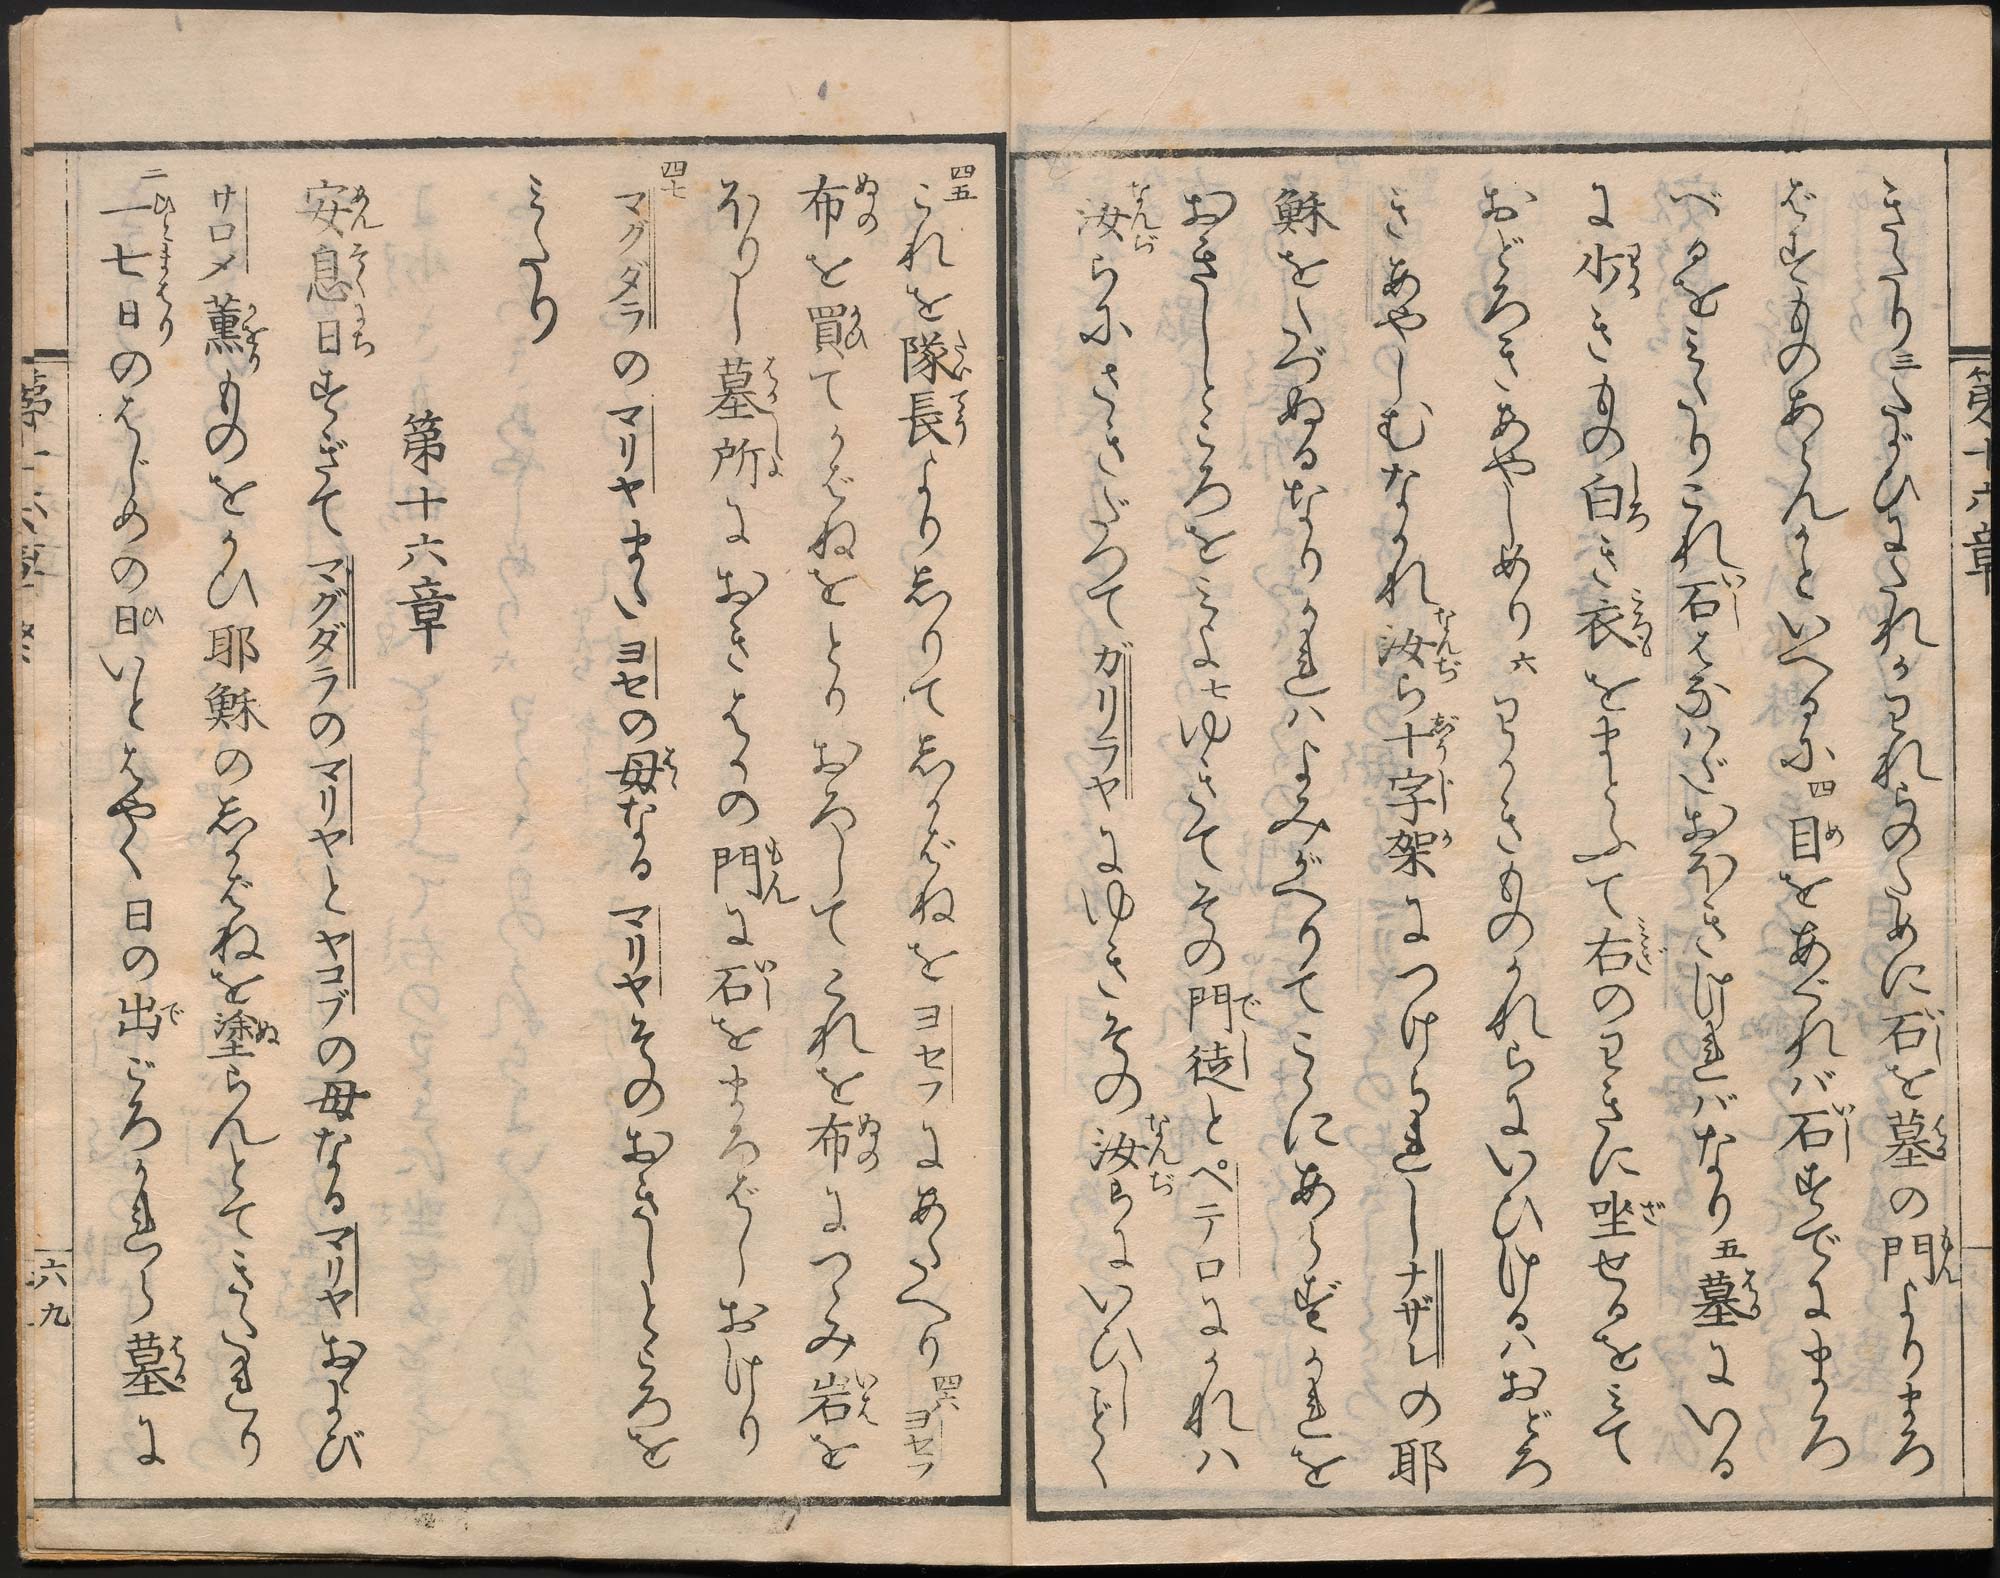 第十六章
きたり三たがひにたれかわれらのために石を墓の門よりまろ
ばすものあらんかといへるに四目をあぐれバ石すでにまろ
べるをみたりこれ石はなハだおほきけれバなり五墓にいる
に少きもの白き衣をまとふて右のわきに坐せるをみて
おどろきあやしめり六わかきものかれらにいひけるハおどろ
きあやしむなかれ汝ら十字架につけられしナザレの耶
穌をたづぬるなりかれハよみがへりてこゝにあらずかれを
おきしところをみよ七ゆきてその門徒とペテロにかれハ
汝らにさきだつてガリラヤにゆきその汝らにいひしごとく
四五これを隊長よりしりてしかばねをヨセフにあたへり四六ヨセフ
布を買てかばねをとりおろしてこれを布につゝみ岩を
ほりし墓所におきはかの門に石をまろばしおけり
四七マグダラのマリヤまたヨセの母なるマリヤそのおきしところを
みたり
第十六章
安息日すぎてマグダラのマリヤとヤコブの母なるマリヤおよび
サロメ薫ものをかひ耶穌のしかばねを塗らんとてきたれり
二一七日のはじめの日いとはやく日の出ごろかれら墓に
第十六章
六九